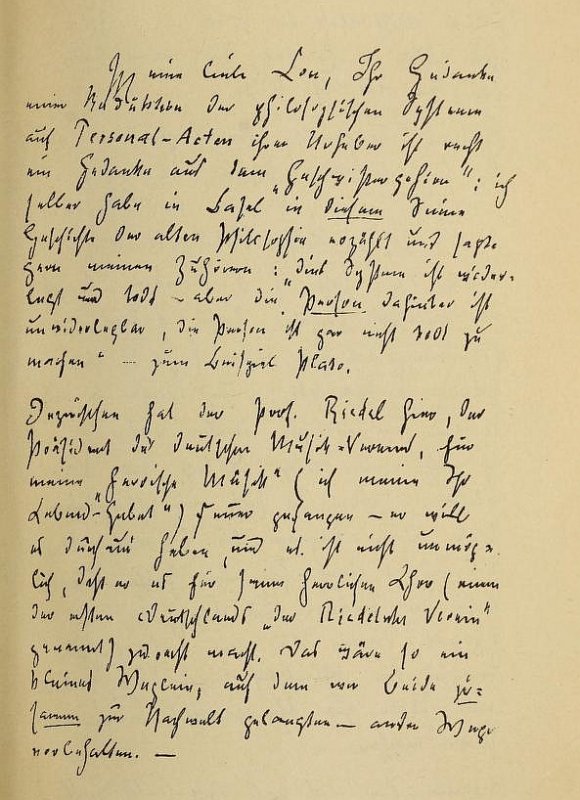 Meine liebe Lou, Ihr Gedanke
einer Reduktion der philosophischen Systeme
auf Personal-Acten ihrer Urheber ist recht
ein Gedanke aus dem „Geschwistergehirn“: ich
selber habe in Basel in diesem Sinne
Geschichte der alten Philosophie erzählt und sagte
gern meinen Zuhörern: „dies System ist wider-
legt und todt – aber die Person dahinter ist
unwiderlegbar, die Person ist gar nicht todt zu
machen“ — zum Beispiel Plato.
Inzwischen hat der Prof. Riedel hier, der
Präsident des deutschen Musik-Vereins, für
meine „heroische Musik“ (ich meine Ihr
Lebens-„Gebet“) Feuer gefangen – er will
es durchaus haben, und es ist nicht unmög-
lich, daß er es für seinen herrlichen Chor (einen
der ersten Deutschlands „der Riedelsche Verein“
genannt) zurecht macht. Das wäre so ein
kleines Weglein, auf dem wir Beide zu-
sammen zur Nachwelt gelangten – andre Wege
vorbehalten. —